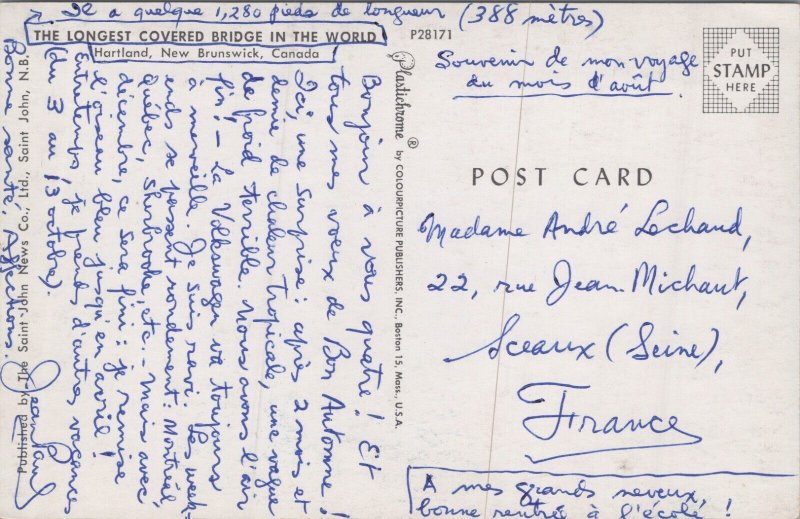 Il a quelque 1,280 pieds de longueur (388 mètres)
THE LONGEST COVERED BRIDGE IN THE WORLD
Hartland, New Brunswick, Canada
P28171
Souvenir de mon voyage
du mois d'août.
PUT
STAMP
HERE
POST CARD
Madame André Lechaud,
22, rue Jean Michaut,
Sceaux (Seine),
France
A mes grands neveux,
bonne rentrée à l'école !
Plastichrome ® by COLOURPICTURE PUBLISHERS, INC., Boston 15, Mass., U.S.A.
Bonjour à vous quatre ! Et
tous mes voeux de Bon Automne !
Ici, une surprise : après 2 mois et
demie de chaleur tropicale, une vague
de froid terrible. Nous avons l'air
fin ! - La Volkswagen va toujours
à merveille. Je suis ravi. Les week-
ends se passent rondement : Montréal
Québec, Sherbrooke, etc - Mais avec
décembre, ce sera fini : je remise
l'oiseau bleu jusqu'en avril !
Entretemps, je prends d'autres vacances
(du 3 au 13 octobre).
Bonne santé. Affections.
Jean Paul
Published by The Saint John News Co., Ltd., Saint John, N.B.